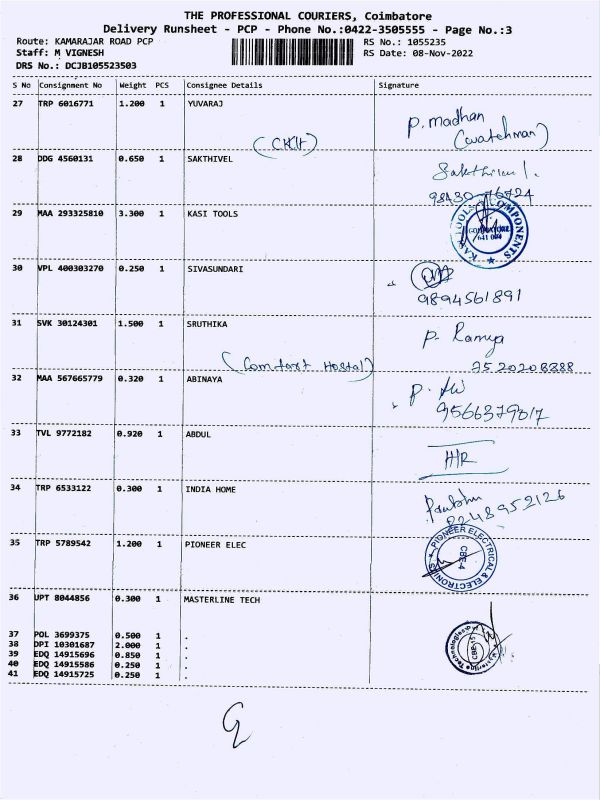 THE PROFESSIONAL COURIERS, Coimbatore
Delivery Runsheet - PCP - Phone No.:0422-3505555 - Page No.:3
Route: KAMARAJAR ROAD PCP RS No.: 1055235
Staff: M VIGNESH RS Date: 08-Nov-2022
DRS No.: DCJB105523503
S No Consignment No Weight PCS Consignee Details Signature
27 TRP 6016771 1.200 1 YUVARAJ
P. Madhan
(watchman)
28 DDG 4560131 0.650 1 SAKTHIVEL
29 MAA 293325810 3.300 1 KASI TOOLS
KASI TOOLS & COMPONENTS
COIMBATORE
641 004
30 VPL 400303270 0.250 1 SIVASUNDARI
9894561891
31 SVK 30124301 1.500 1 SRUTHIKA
P. Ramya
(Comfort Hostal)
32 MAA 567665779 0.320 1 ABINAYA
33 TVL 9772182 0.920 1 ABDUL
34 TRP 6533122 0.300 1 INDIA HOME
8248952126
35 TRP 5789542 1.200 1 PIONEER ELEC
PIONEER ELECTRICAL & ELECTRONICS
CBE-4
36 UPT 8044856 0.300 1 MASTERLINE TECH
37 POL 3699375 0.500 1 .
38 DPI 10301687 2.000 1 .
39 EDQ 14915696 0.850 1 .
40 EDQ 14915586 0.250 1 .
41 EDQ 14915725 0.250 1 .